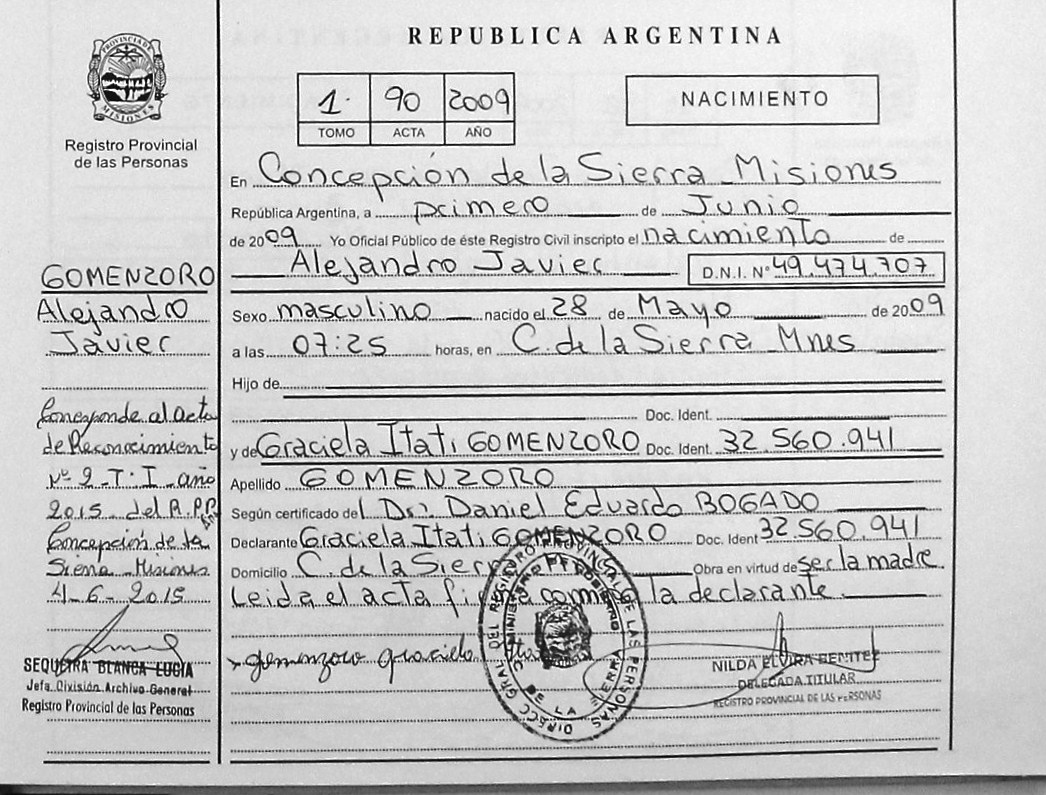 REPUBLICA ARGENTINA
PROVINCIA DE MISIONES
Registro Provincial
de las Personas
1 90 2009
TOMO ACTA AÑO
NACIMIENTO
En Concepción de la Sierra Misiones
República Argentina, a primero de Junio
de 2009 Yo Oficial Público de éste Registro Civil inscripto el nacimiento de
Alejandro Javier D.N.I. Nº 49.474.707
Sexo masculino nacido el 28 de Mayo de 2009
a las 07:25 horas, en C. de la Sierra Mnes
Hijo de
Doc. Ident.
y de Graciela Itatí GOMENZORO Doc. Ident. 32.560.941
Apellido GOMENZORO
Según certificado del Dr: Daniel Eduardo BOGADO
Declarante Graciela Itatí GOMENZORO Doc. Ident 32.560.941
Domicilio C. de la Sierra Obra en virtud de ser la madre
Leida el acta firma conmigo la declarante.
gomenzoro graciela
NILDA ELVIRA BENITEZ
DELEGADA TITULAR
REGISTRO PROVINCIAL DE LAS PERSONAS
DIRECC. GRAL DEL REGISTRO PROVINCIAL DE LAS PERSONAS
MINISTERIO DE GOBIERNO
DE LA SIERRA
GOMENZORO
Alejandro
Javier
Corresponde al acta
de Reconocimiento
Nº 2 - T - I - año
2015 del R.P.P.
Concepción de la
Sierra Misiones
4-6-2015
SEQUEIRA BLANCA LUCIA
Jefa División Archivo General
Registro Provincial de las Personas